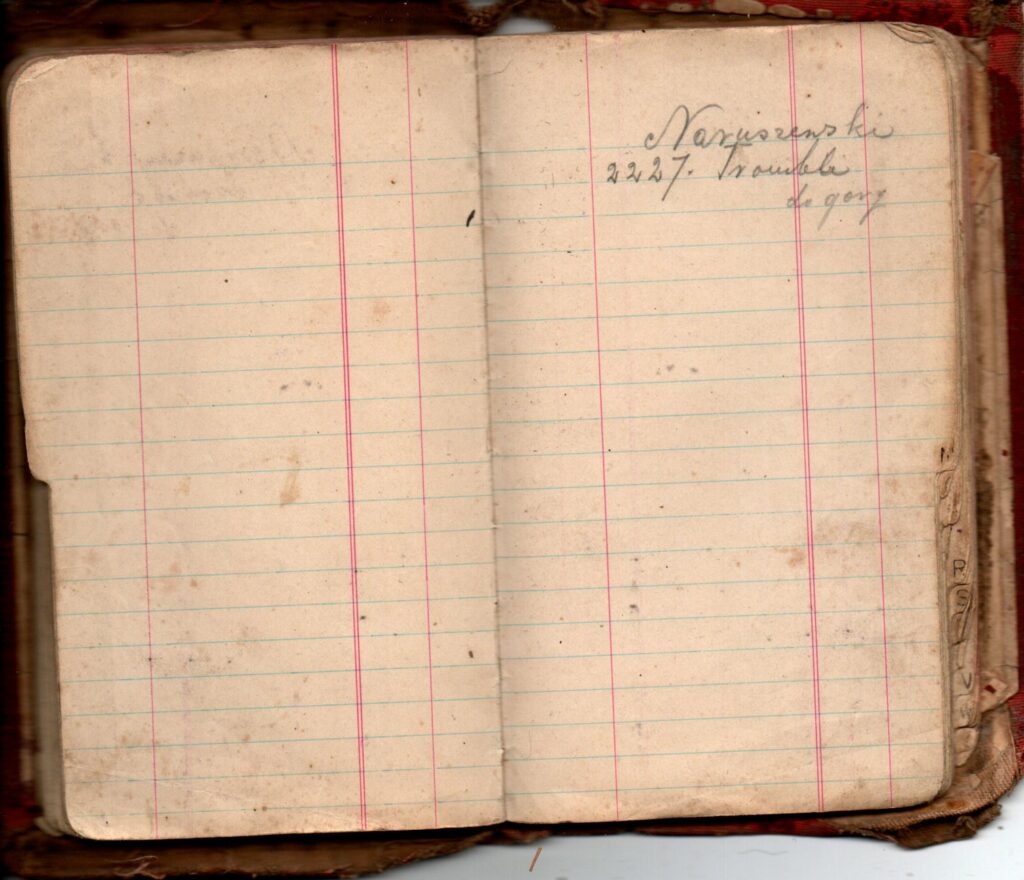 Naruszenski
2227. Trombli
do gory
M
R
S
V